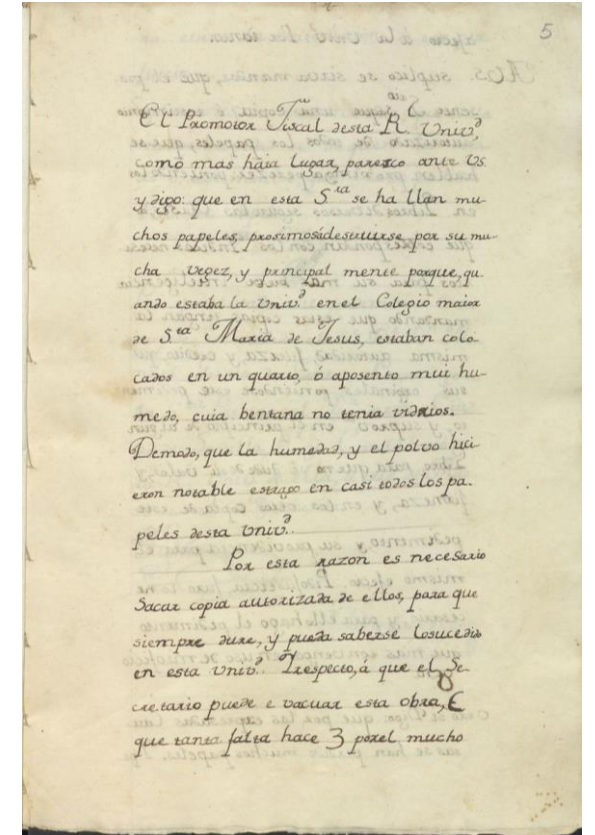 5
El Promotor Fiscal desta R.l Univ.d
como mas haia lugar, paresco ante Vs.
y digo: que en esta S.ria se ha llan mu-
chos papeles, prosimosádestruirse por su mu-
cha vegez, y principal mente porque, qu-
ando estaba la Univ.d en el Colegio maior
de S.ta Maria de Jesus, estaban colo-
cados en un quarto, ó aposento mui hu-
medo, cuia bentana no tenia vidrios.
Demodo, que la humedad, y el polvo hici-
eron notable estrago en casi todos los pa-
peles desta Univ.d
Por esta razon es necesario
Sacar copia autorizada de ellos, para que
siempre dure, y pueda saberse losucedido
en esta Univ.d Yrespecto, á que el Se-
cretario puede e vacuar esta obra,
que tanta falta hace porel mucho